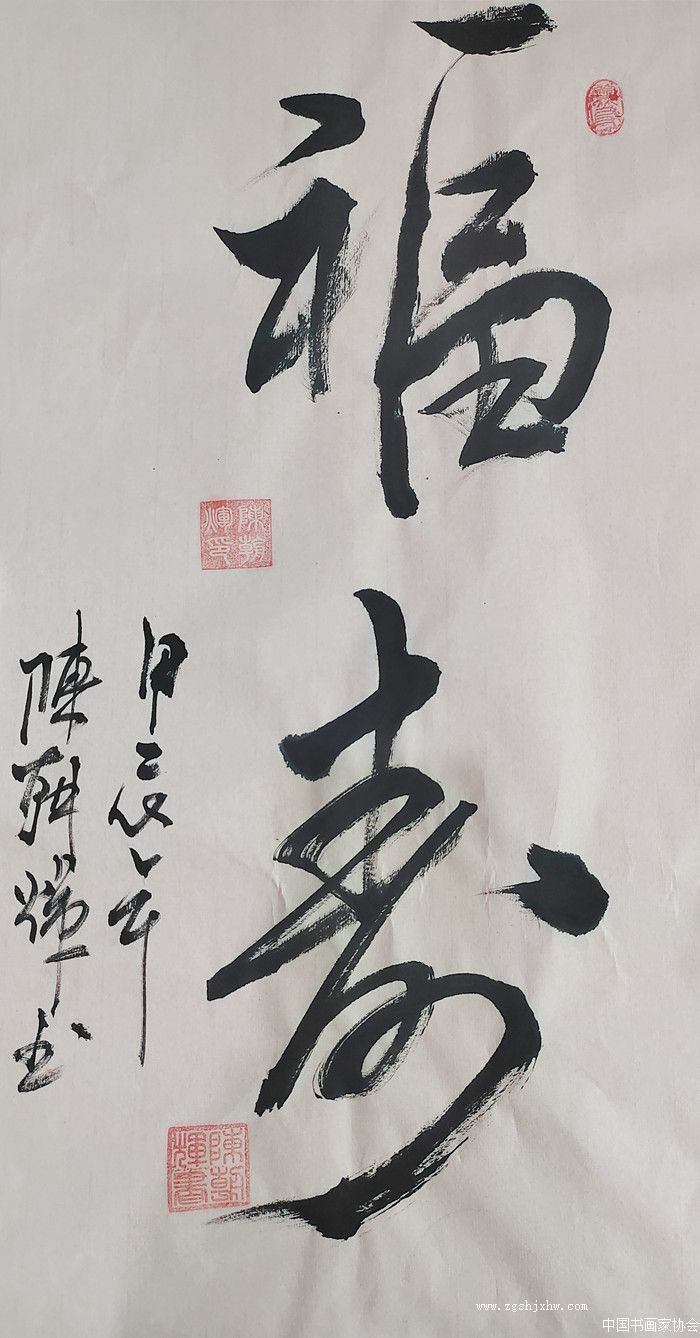 福寿
甲辰年
陳朝輝書
陳朝輝印
陳朝輝書
www.zgshjxhw.com
中国书画家协会